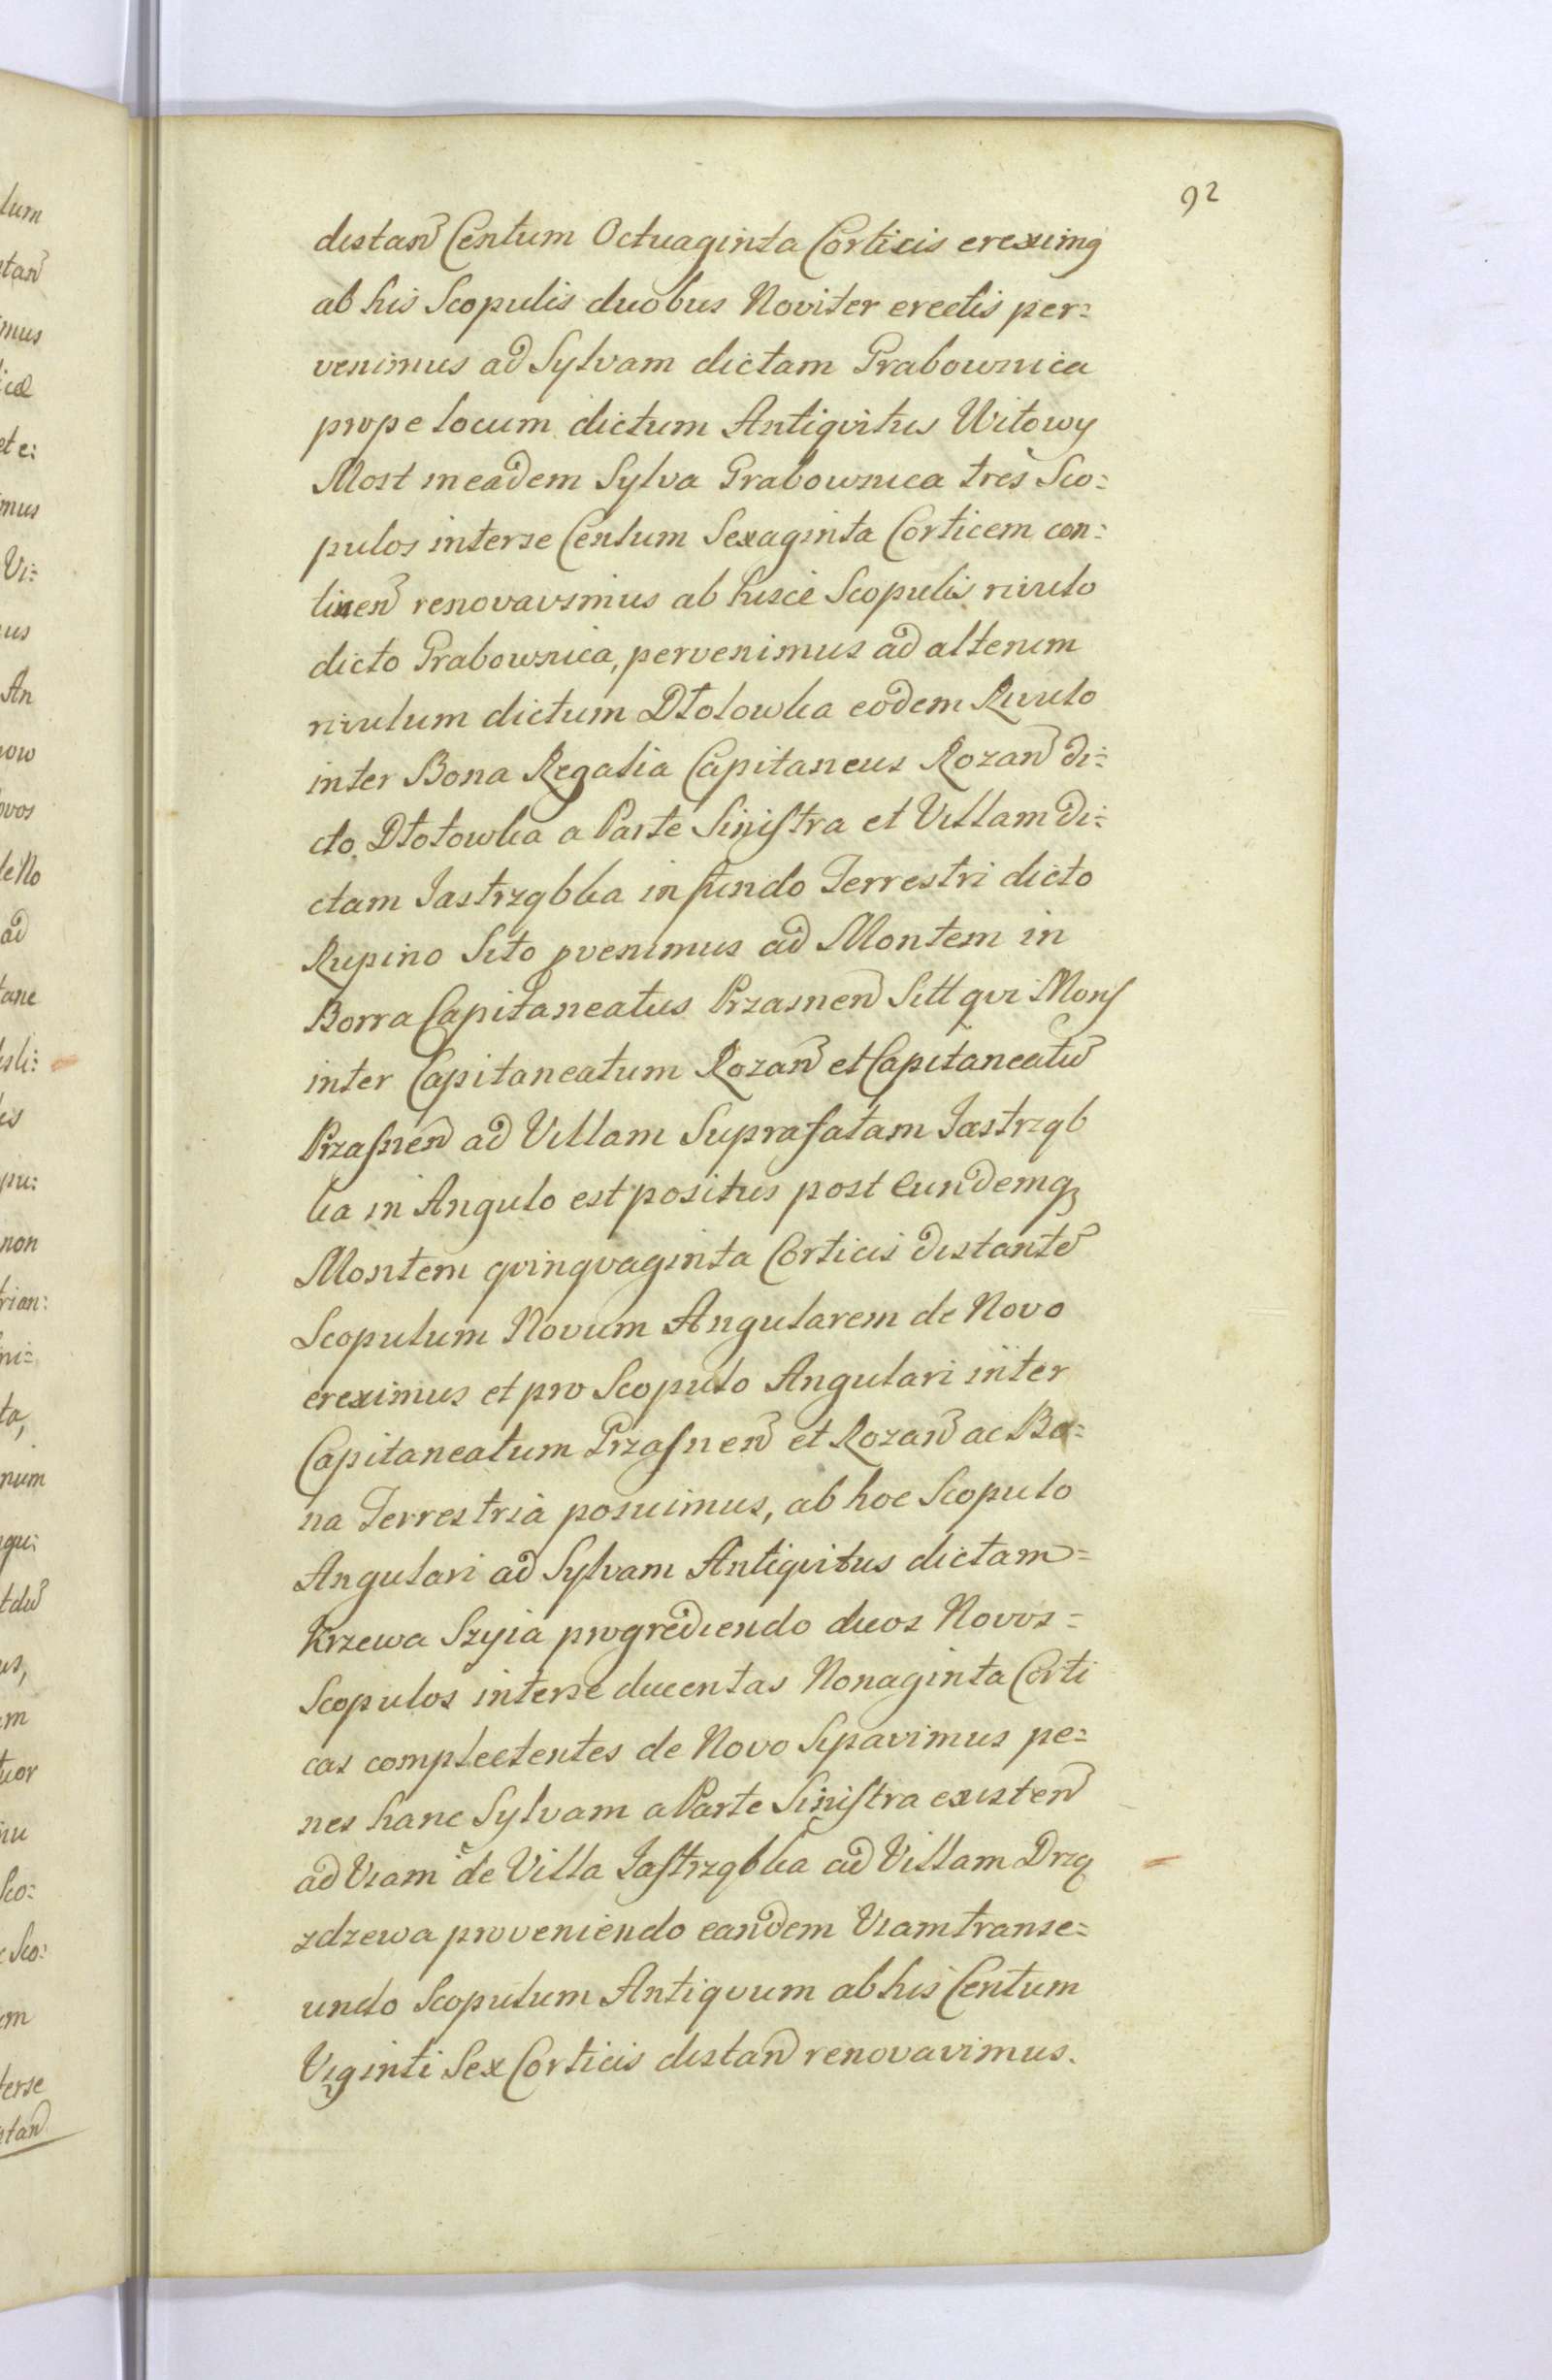 92
distan͂ Centum Octuaginta Corticis ereximq́
ab his Scopulis duobus Noviter erectis per=
venimus ad Sylvam dictam Grabownica
prope locum dictum Antiqvitus Witowy
Most in eadem Sylva Grabownica tres Sco=
pulos interse Centum Sexaginta Corticem con=
tinen͂ renovavimus ab hisce Scopulis rivulo
dicto Grabownica, pervenimus ad alterum
rivulum dictum Dłotowka eodem Rivulo
inter Bona Regalia Capitaneus Rozan͂ di=
cto Dłotowka a Parte Siniſtra et Villam di=
ctam Jastrzqbka in fundo Terrestri dicto
Rupino Sito pvenimus ad Montem in
Borra Capitaneatus Przasnen͂ Sitt qvi Monſ
inter Capitaneatum Rozan͂ et Capitaneatu͂
Przaſnen͂ ad Villam Suprafatam Jastrzqb
ka in Angulo est positus post Eundemqȝ
Montem qvinqvaginta Corticis distante͂
Scopulum Novum Angularem de Novo
ereximus et pro Scopulo Angulari inter
Capitaneatum Przaſnen͂ et Rozan͂ ac Bo=
na Terrestria posuimus, ab hoc Scopulo
Angulari ad Sylvam Antiqvitus dictam=
Krzewa Szyia progrediendo duos Novos=
Scopulos interse ducentas Nonaginta Corti
cas complectentes de Novo Sipavimus pe=
nes hanc Sylvam a Parte Siniſtra existen͂
ad Viam de Villa Jaſtrzqbka ad Villam Drzq
zdzewa proveniendo eandem Viam transe=
undo Scopulum Antiqvum ab his Centum
Viginti Sex Corticis distan͂ renovavimus.